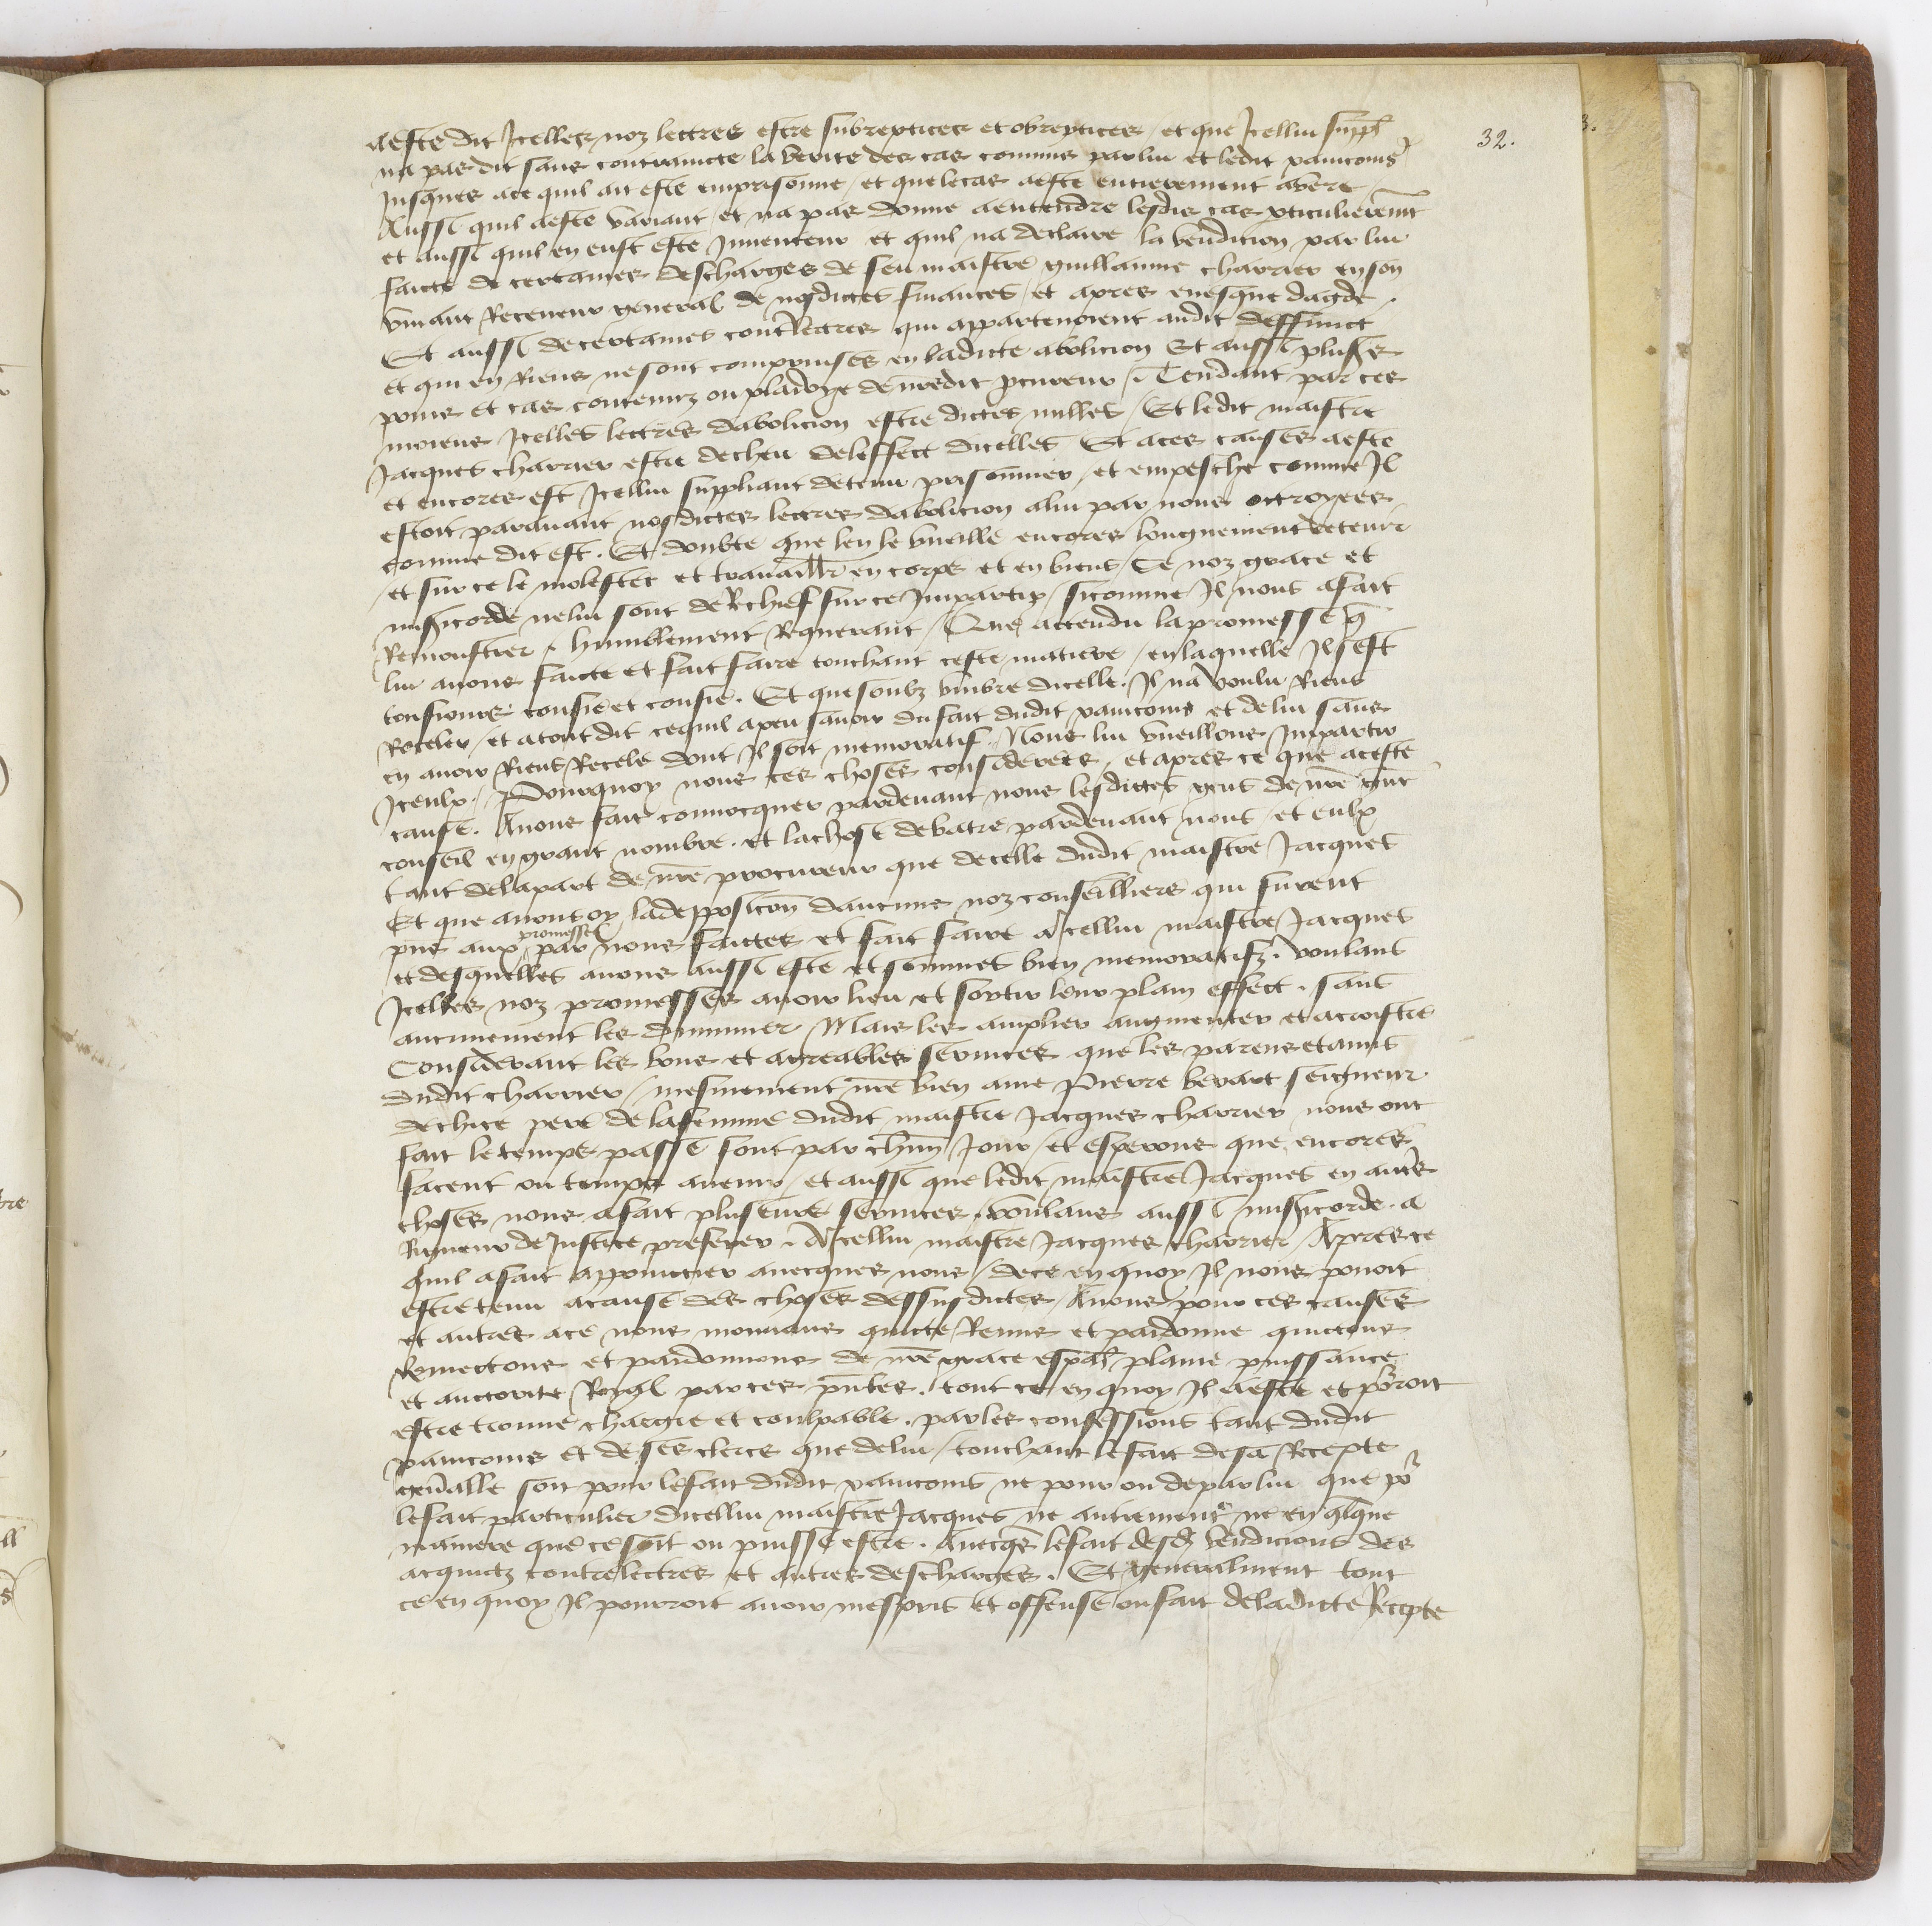 32.
a este dit Icelles noz lettres estre subreptices et obreptices / et que Icellui suppl
na pas dit sans contraincte la verite des cas commis par lui et ledit xaincoins
Jusques ace quil ait este emprisonne / et que le cas a este entierement avere /
Aussi quil a este variant / et na pas donne a entendre lesdis cas pticulierement
et aussi quil en eust este Inuenteur et quil na declaire la vendicion par lui
faicte de certaines descharges de feu maistre guillaume charrier en son
viuant Receueur general de nosdictes finances / et apres euesque dagde .
Et aussi de certaines contrelectres qui appartenoient audit deffunct
et qui en Riens ne sont comprinses en ladicte abolicion Et aussi plus
poins et cas contenuz ou plaidoye de nredit pcureur / Tendant par ces
moiens Icelles lectres dabolicion estre dictes nulles / Et ledit maistre
Jacques charrier estre decheu deleffect dicelles Et aces causes a este
et encores est Icellui suppliant detenu prisonnier / et empesche comme Il
estoit parauant nosdictes lectres dabolicion alui par nous octroyees
comme dit est . Et doubte que len le vueille encores longuement detenir
et sur ce le molester et trauailler en corps et en biens / Se noz grace et
misicorde ne lui sont de Rechief sur ce Imparties / sicomme Il nous a fait
Remonstrer / humblement Requerant / Que attendu la promesse q
lui auons faicte et fait faire touchant ceste matiere / en laquelle Il sest
tousiours confie et confie . Et que soubz vmbre dicelle . Il na voulu Riens
Receler / et a tout dit ce quil a peu sauoir du fait dudit xaincoins et de lui sans
en auoir Riens Recele dont Il soit memoratif . Nous lui vueillons Impartir
Iceulx / Pourquoy nous ces choses considerees / et apres ce que a ceste
cause . Auons fait conuocquer pardeuant nous lesdictes gens de nre grant
conseil en grant nombre . et la chose debatre pardeuant nous / et eulx
tant de la part de nre procureur que de celle dudit maistre Jacques
Et que auons oy la depposicon daucuns noz conseilliers qui furent
pns aux promesses par nous faictes et fait faire a Icellui maistre Jacques
et desquelles auons aussi este et sommes bien memoratifz . voulant
Icelles noz promesses auoir lieu et sortir leur plain effect . sans
aucunement les diminuer Mais les amplier augmenter et accroistre
Considerant les bons et agreables seruices que les parens et amis
dudit charrier / mesmement nre bien ame Pierre berart seigneur
de chice pere de la femme dudit maistre Jacques charrier nous ont
fait le temps passe font par chun Jour / et esperons que encores
facent ou temps auenir / et aussi que ledit maistre Jacques en autres
choses nous a fait pluseurs seruices . voulans aussi misicorde . a
Rigueur de Justice preferer . A Icellui maistre Jacques charrier / Apres ce
quil a fait appoinctier auecques nous / de ce en quoy Il nous pouoit
estre tenu a cause des choses dessusdictes / Auons pour ces causes
et autres ace nous mouuans quicte Remis et pardonne quictons
Remectons et pardonnons de nre grace espal plaine puissance
et auctorite Royal par ces pntes . tout ce en quoy Il a este et porroit
estre trouue chargie et coulpable . par les confessions tant dudit
xaincoins et de ses clercs que de lui / touchant le fait de sa Recepte
gnalle soit pour le fait dudit xaincoins ne pour ou de par lui que por
le fait particulier dicellui maistre Jacques ne autrement ne en qlque
maniere que ce soit ou puisse estre . Auecqs le fait desd vendicions des
acquictz contrelectres et autres descharges . Et generalment tout
ce en quoy Il pourroit auoir mespris et offense ou fait de ladicte Recepte